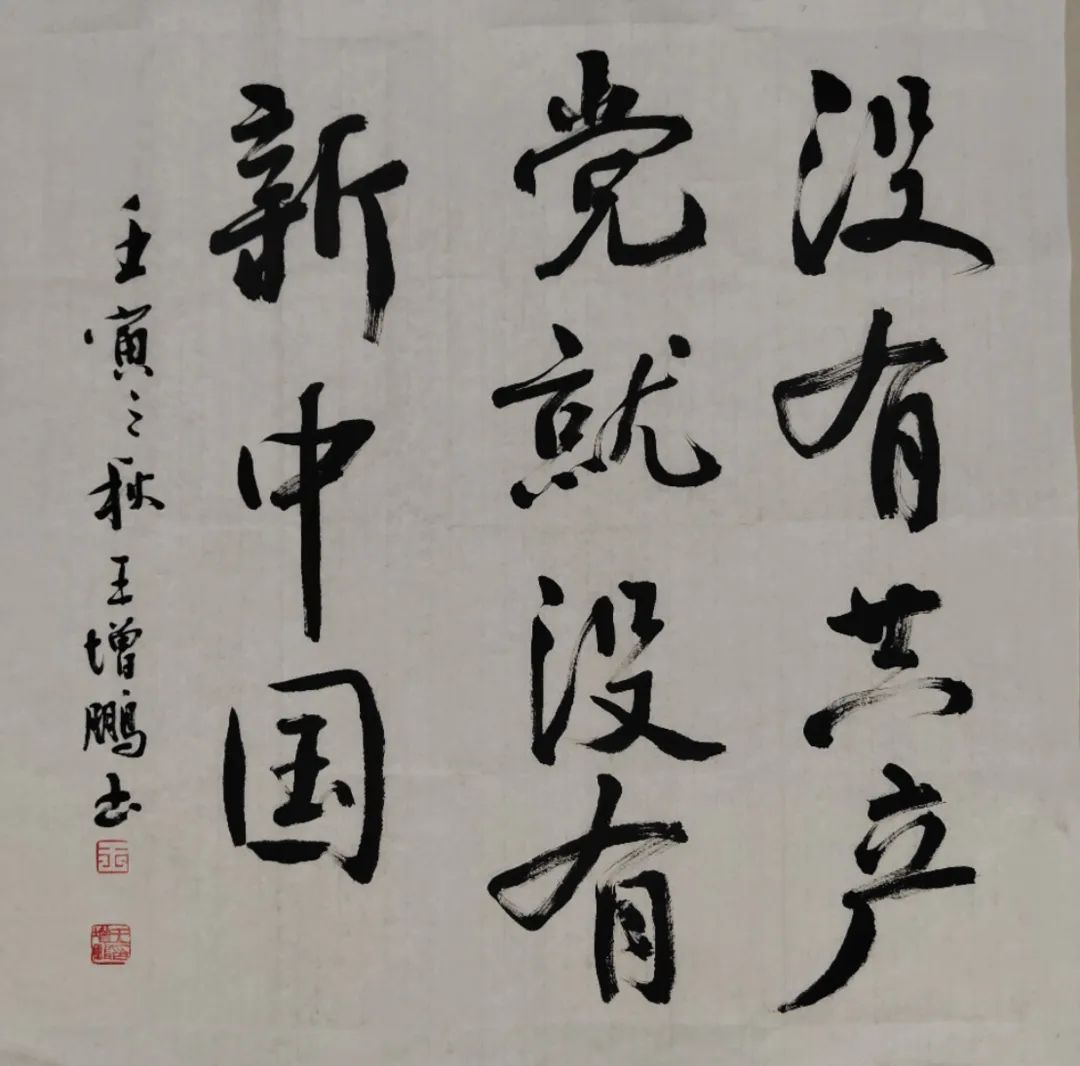 没有共产
党就没有
新中国
壬寅之秋王增鹏书